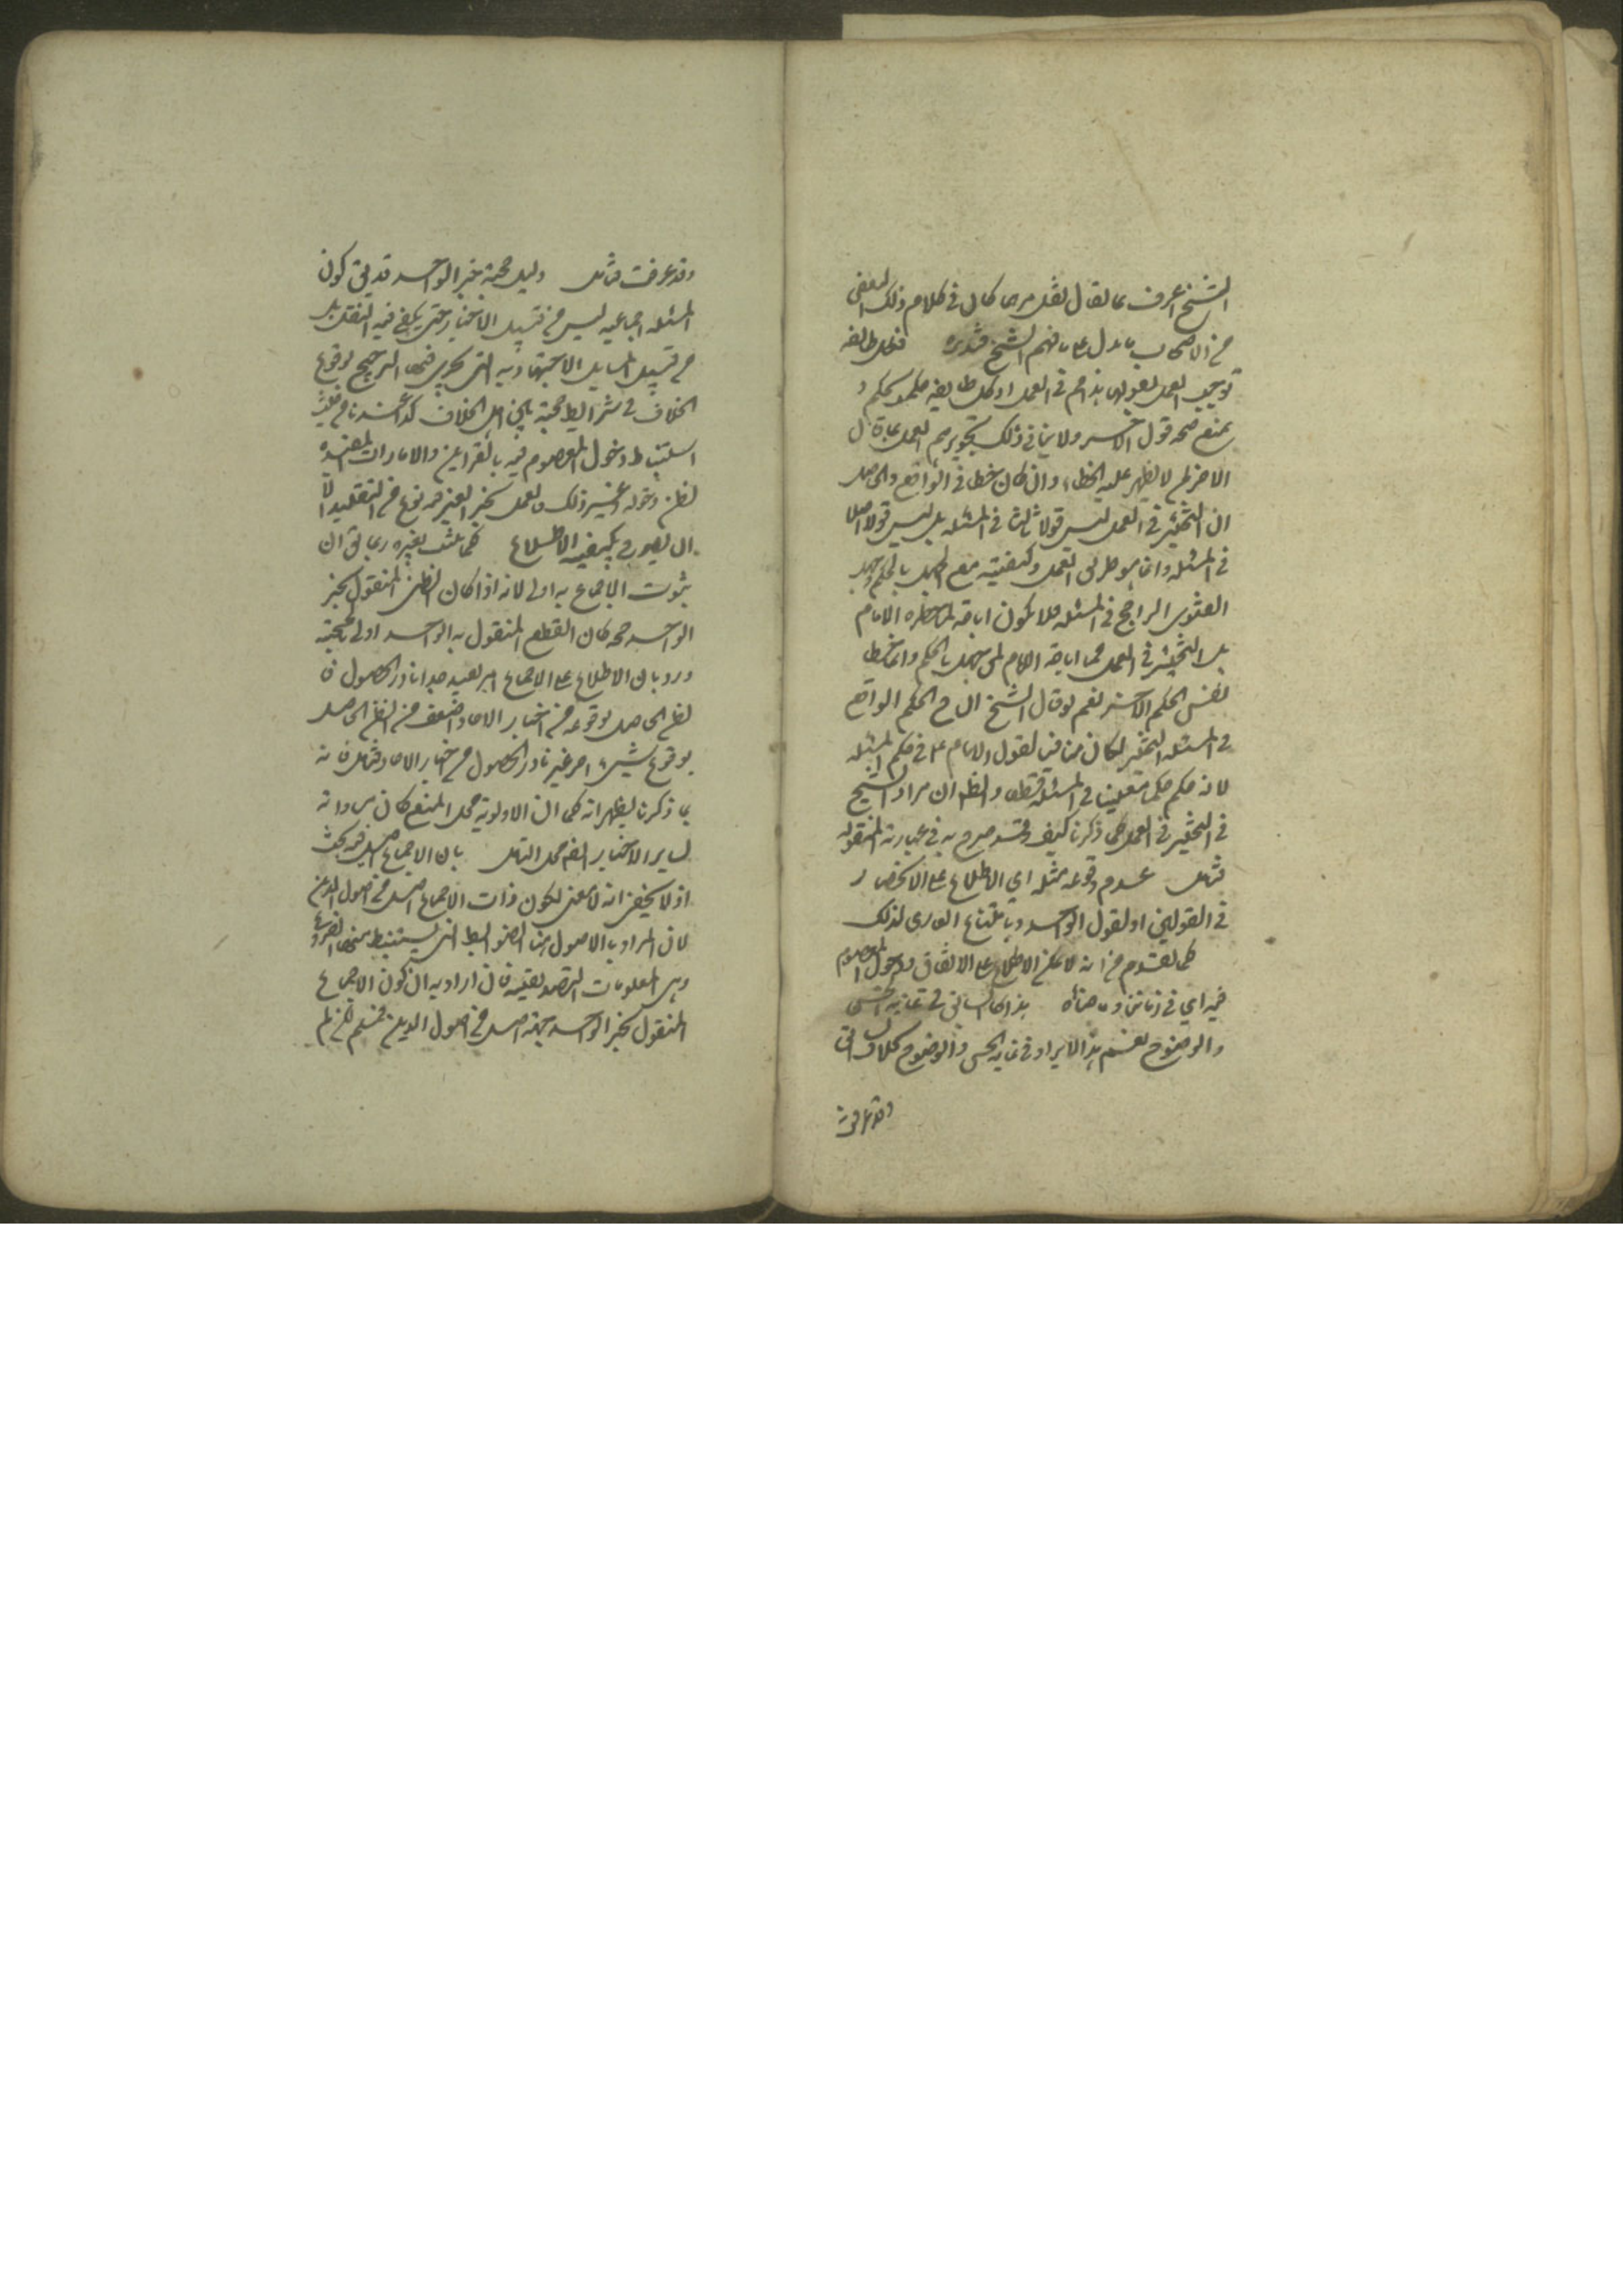 الشيخ اعرف بما يقال لعل كان في كلام ذلك البعض
من الاصحاب ما دل على ما فهم الشيخ فتدبره فلكل طائفه
توجب العمل بقولها في العمل او كل طايفه حكموا بحكم و
يمنع صحه قول الاخر ولا ينافي ذلك تجويزهم العمل بما قال
الاخر لمن لا يظهر عليه الخطاء وان كان خطا في الواقع والحاصل
ان التخيير في العمل ليس قولا ثالثا في المسئله بل ليس قولا اصلا
في المسئله وانما هو طريق العمل وكيفيته مع الجهل بالحكم وجهل
الفتوى الراجح في المسئله فلا يكون اباحة لما حظره الامام
بل التخيير في العمل مما اباحه الامام لمن جهل بالحكم وانما خطا
نفس الحكم الاخر نعم لو قال الشيخ ان ح الحكم الواقع
في المسئله التخيير لكان منافيا لقول الامام ع في حكم المسئله
لانه حكم حكما معينا في المسئلة قطعا والظ ان مراد الشيخ
في التخيير في العمل كما ذكرنا كيف وقد صرح به في عبارته المنقوله
فتامل عدم وقوعه مثله اي الاطلاع على الانحصار
في القولين او لقول الواحد وبامتناع العادى لذلك
كما تقدم من انه لا يمكن الاطلاع على الاتفاق ودخول المعصوم
فيه اي في زماننا وما ضاهاه هذا كالسابق في غايه الحسن
والوضوح نعم هذا الايراد في غايه الحسن والوضوح بخلاف السابق
وقد عرفت
وقد عرفت فتامل دليل حجية خبر الواحد قد يق كون
المسئله اجماعيه ليس من قبيل الاخبار حتى يكفي فيه النقل بل
من قبيل المسايل الاجتهاديه التي يجري فيها الترجيح لوقوع
الخلاف في شرايط حجية بين اهل الخلاف كذا عندنا من حيث
استنباط دخول المعصوم فيه بالقراين والامارات المفيده
لظن دخوله وغير ذلك فالعمل بخبر الغير فيه نوع من التقليد الا
ان يصرح بكيفيه الاطلاع كما يثبت بغيره ربما يق ان
ثبوت الاجماع به اولى لانه اذا كان الظني المنقول بخبر
الواحد حجه كان القطع المنقول به الواحد اولى بالحجية
ورد بان الاطلاع على الاجماع امر بعيد جدا نادر الحصول فا
لظن الحاصل بوقوعه من اخبار الاحاد اضعف من الظن الحاصل
بوقوع شيء امر غير نادر الحصول من اخبار الاحاد فتامل فانه
بما ذكرنا يظهر انه كما ان الاولويه محل المنع كان مساواته
لساير الاخبار ايضا محل التامل بان الاجماع اصل فيه بحث
اذ لا يخفى انه لا معنى لكون ذات الاجماع اصل من اصول الدين
لان المراد بالاصول هنا الضوابط التي يستنبط منها الفروع
وهي المعلومات التصديقيه فان اراد به ان كون الاجماع
المنقول بخبر الواحد حجة اصل من اصول الدين فمسلم لكن لم